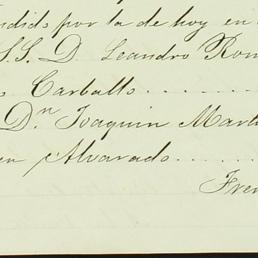 ndido por la de hoy en
S.S. D. Leandro Rom
Carballo
Dn. Joaquin Mart
en Alvarado
Fren